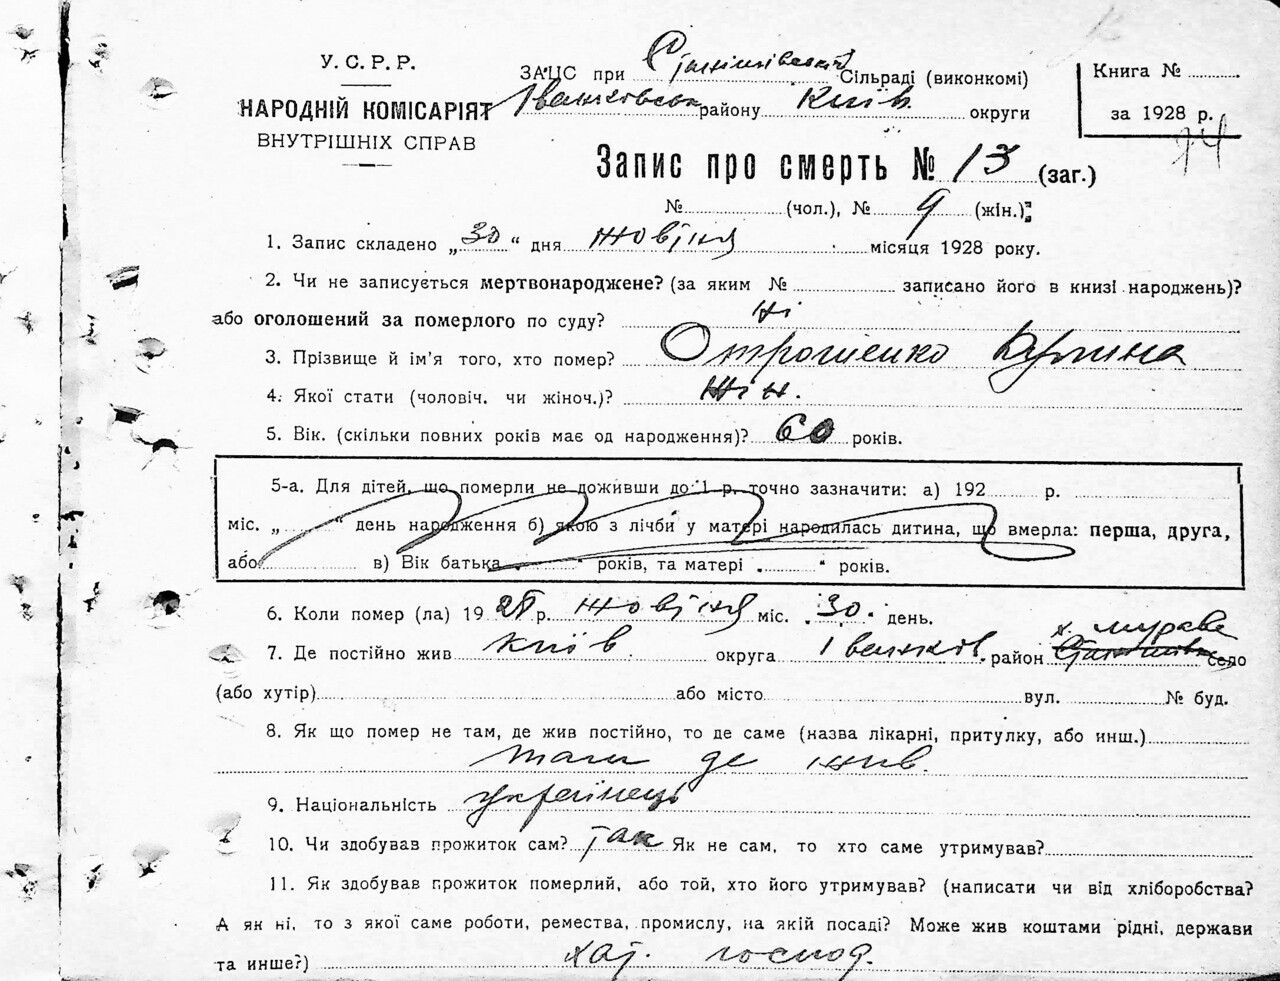 У. С. Р. Р.
НАРОДНІЙ КОМІСАРІЯТ
ВНУТРІШНІХ СПРАВ
ЗАГС при Сільраді (виконкомі)
Іванківськ району Київ. округи
Книга №
за 1928 р.
74
Запис про смерть № 13 (заг.)
№ (чол.), № 9 (жін.)
1. Запис складено „30“ дня жовтня місяця 1928 року.
2. Чи не записується мертвонароджене? (за яким № записано його в книзі народжень)?
або оголошений за померлого по суду? ні
3. Прізвище й ім'я того, хто помер? Отрошенко
4. Якої статі (чоловіч. чи жіноч.)? жін.
5. Вік. (скільки повних років має од народження)? 60 років.
5-а. Для дітей, що померли не доживши до 1 р. точно зазначити: а) 192 р.
міс. „ “ день народження б) якою з лічби у матері народилась дитина, що вмерла: перша, друга,
або в) Вік батька років, та матері років.
6. Коли помер (ла) 1928 р. жовтня міс. 30 день.
7. Де постійно жив Київ округа Іванков. район х. Мураве село
(або хутір) або місто вул. № буд.
8. Як що помер не там, де жив постійно, то де саме (назва лікарні, притулку, або инш.)
там де жив.
9. Національність українець
10. Чи здобував прожиток сам? так Як не сам, то хто саме утримував?
11. Як здобував прожиток померлий, або той, хто його утримував? (написати чи від хліборобства?
А як ні, то з якої саме роботи, ремества, промислу, на якій посаді? Може жив коштами рідні, держави
та инше?) хат. господ.